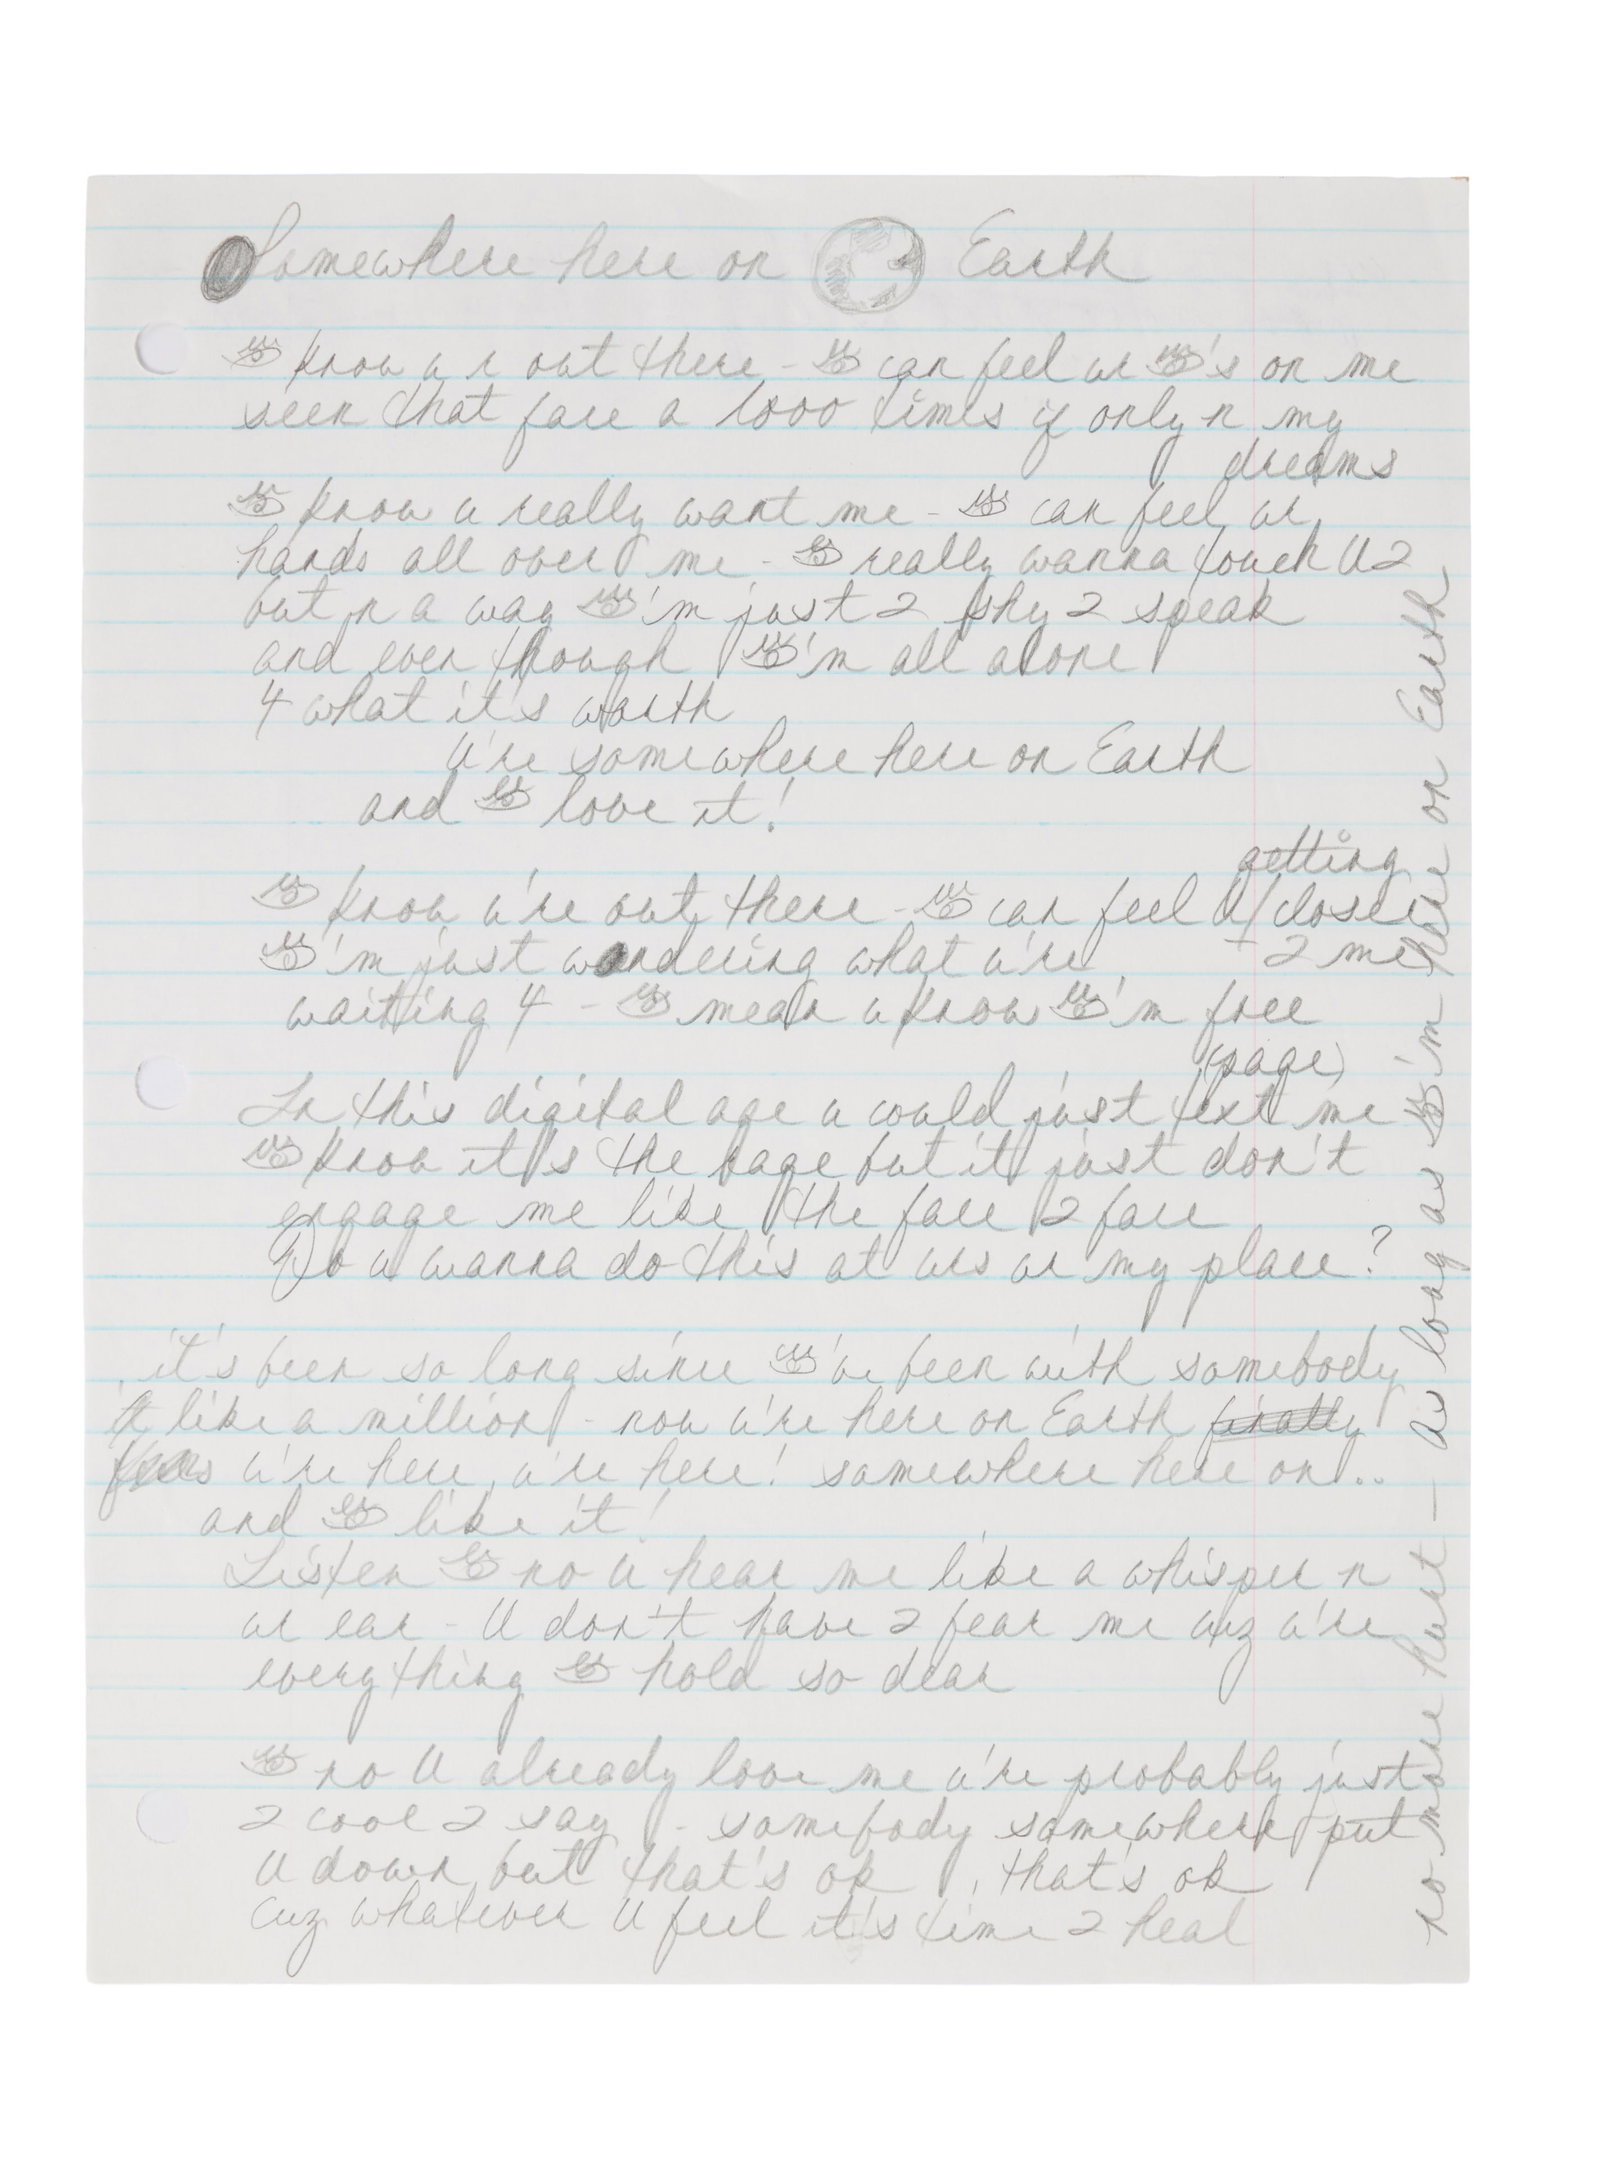 Somewhere here on Earth
👁 know u r out there - 👁 can feel ur 👁's on me
seen that face a 1000 times if only n my
dreams
👁 know u really want me - 👁 can feel ur
hands all over me - 👁 really wanna touch U 2
but n a way 👁'm just 2 shy 2 speak
and even though 👁'm all alone
4 what it's worth
u're somewhere here on Earth
and 👁 love it!
getting
👁 know u're out there - 👁 can feel U closer
2 me
👁'm just wondering what u're
waiting 4 - 👁 mean u know 👁'm free
(page)
In this digital age u could just text me
👁 know it's the rage but it just don't
engage me like the face 2 face
Do u wanna do this at urs or my place?
it's been so long since 👁've been with somebody
It like a million - now u're here on Earth finally
feels u're here, u're here! somewhere here on...
and 👁 like it!
Listen 👁 no U hear me like a whisper n
ur ear - U don't have 2 fear me cuz u're
everything 👁 hold so dear
👁 no U already love me u're probably just
2 cool 2 say - somebody somewhere put
U down but that's ok, that's ok
cuz whatever U feel it's time 2 heal
no more hurt — as long as 👁'm here on Earth